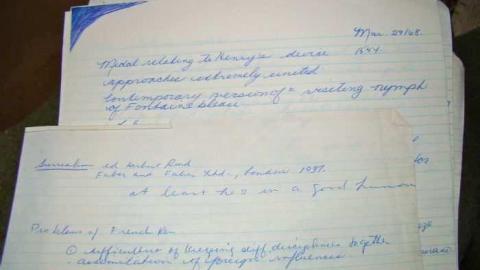 Mar. 29/68.
Medal relating to Henry's device
approaches extremely united
contemporary version of resting nymph
of Fontainebleau
Surrealism ed. Herbert Read
Faber and Faber Ltd., London. 1937.
at least he's in a good human
Problems of French Ren
① difficulties of keeping diff. disciplines together
assimilation of foreign influences